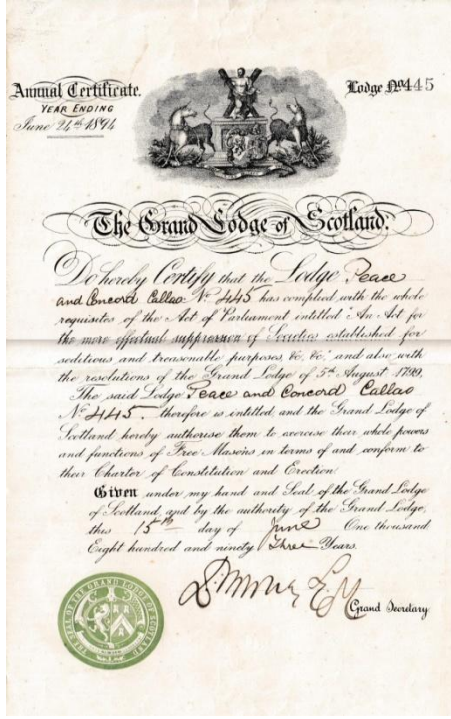 Annual Certificate.
YEAR ENDING
June 24th 1894
Lodge No. 445
The Grand Lodge of Scotland.
Do hereby Certify that the Lodge Peace
and Concord Callao No. 445 has complied with the whole
requisites of the Act of Parliament entitled "An Act for
the more effectual suppression of Societies established for
seditious and treasonable purposes, &c, &c," and also with
the resolutions of the Grand Lodge of 5th August 1799.
The said Lodge Peace and Concord Callao
No. 445 therefore is intitled, and the Grand Lodge of
Scotland hereby authorise them to exercise their whole powers
and functions of Free Masons in terms of and conform to
their Charter of Constitution and Erection.
Given under my hand and Seal of the Grand Lodge
of Scotland, and by the authority of the Grand Lodge,
this 15th day of June One thousand
Eight hundred and ninety Three Years.
Grand Secretary
THE SEAL OF THE GRAND LODGE OF SCOTLAND